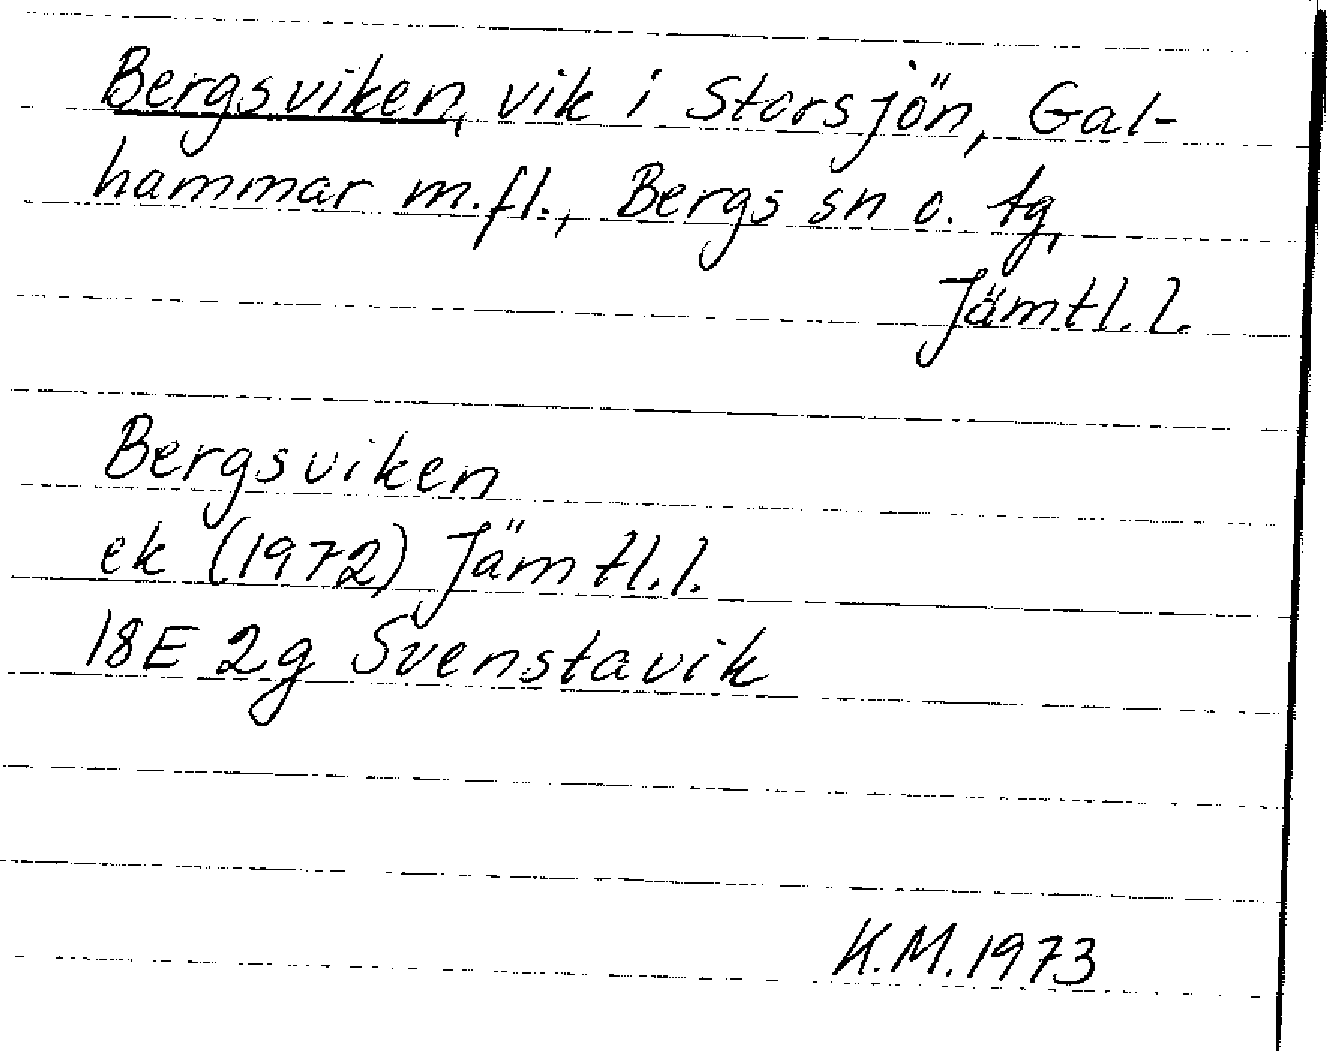 Bergsviken, vik i Storsjön, Gal-
hammar m.fl., Bergs sn o. tg,
Jämtl.l.
Bergsviken
ek (1972) Jämtl.l.
18E 2g Svenstavik
K.M.1973